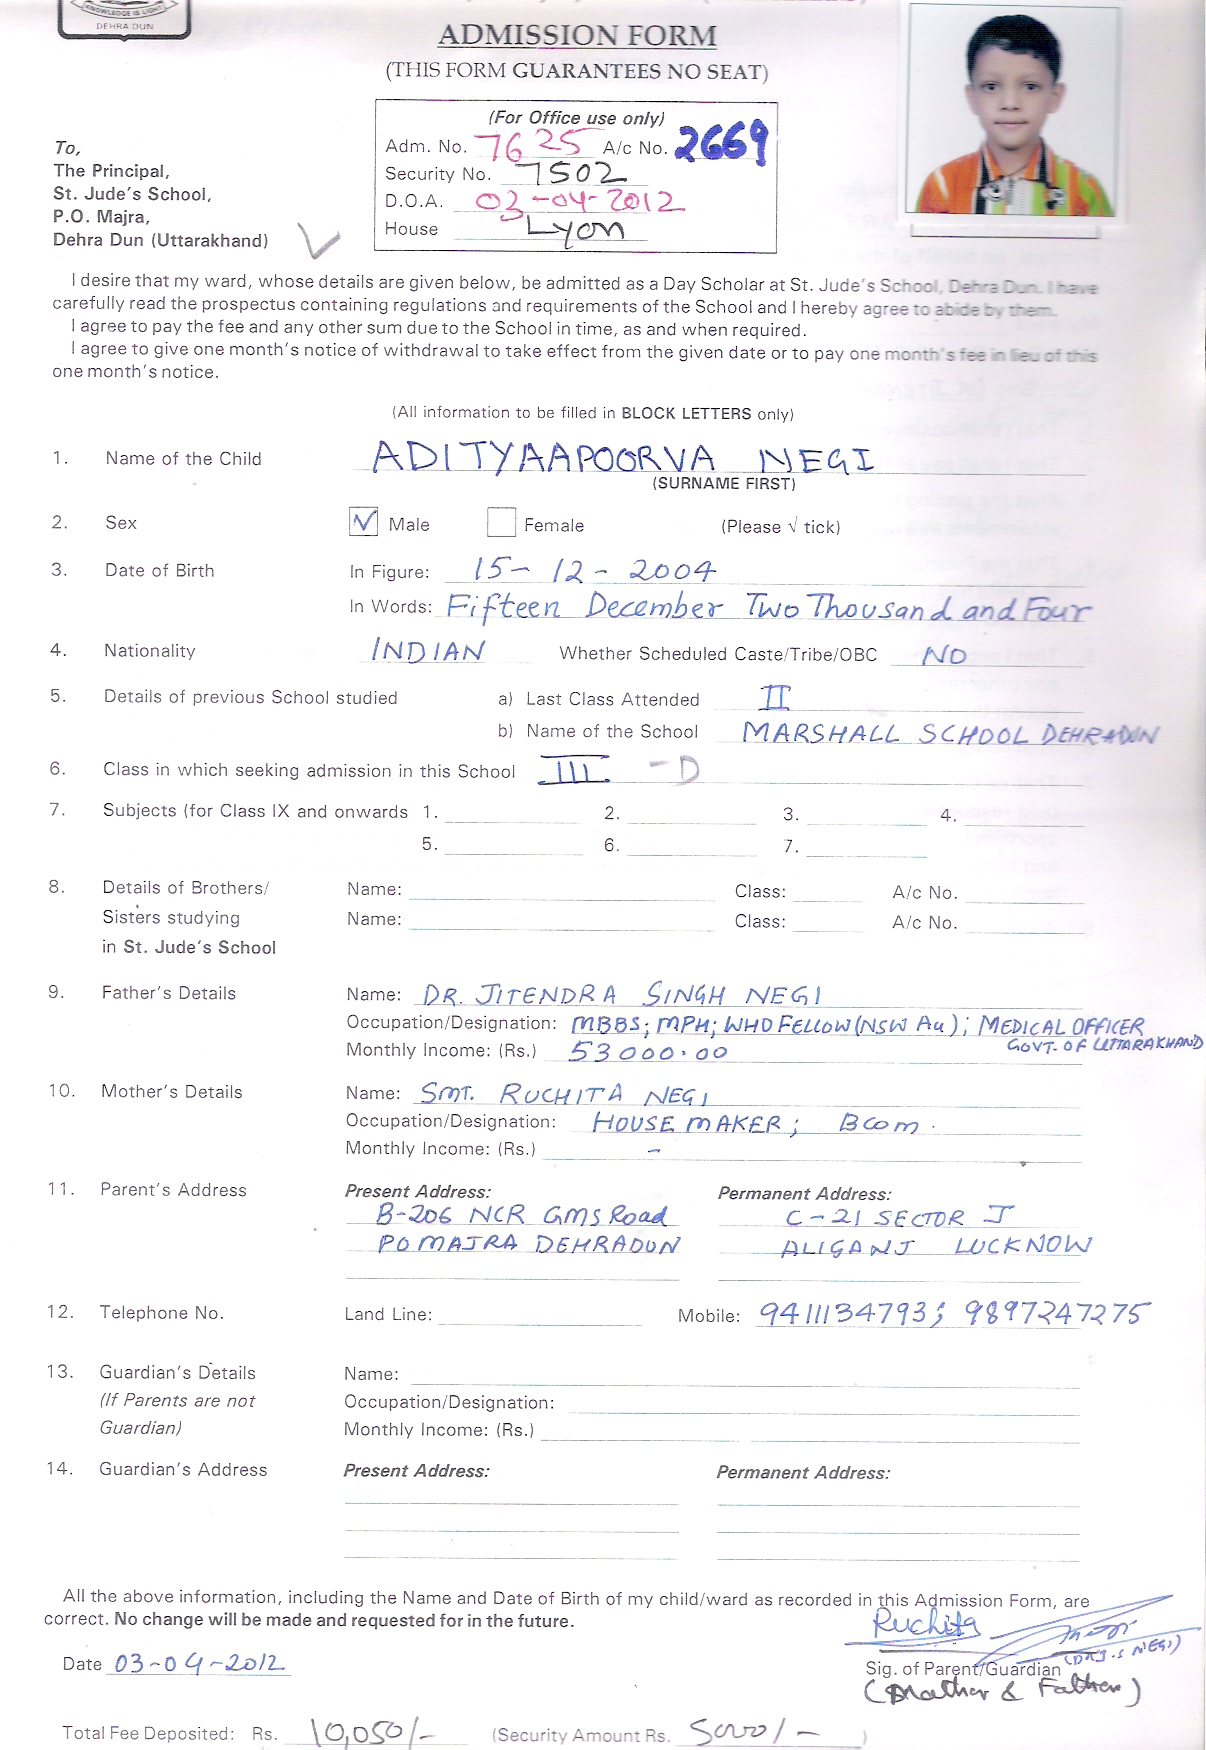 KNOWLEDGE IS LIGHT
DEHRA DUN
ADMISSION FORM
(THIS FORM GUARANTEES NO SEAT)
(For Office use only)
Adm. No. 7625 A/c No. 2669
Security No. 7502
D.O.A. 03-04-2012
House Lyon
To,
The Principal,
St. Jude's School,
P.O. Majra,
Dehra Dun (Uttarakhand)
I desire that my ward, whose details are given below, be admitted as a Day Scholar at St. Jude's School, Dehra Dun. I have
carefully read the prospectus containing regulations and requirements of the School and I hereby agree to abide by them.
I agree to pay the fee and any other sum due to the School in time, as and when required.
I agree to give one month's notice of withdrawal to take effect from the given date or to pay one month's fee in lieu of this
one month's notice.
(All information to be filled in BLOCK LETTERS only)
1. Name of the Child ADITYAAPOORVA NEGI
(SURNAME FIRST)
2. Sex ✓ Male Female (Please √ tick)
3. Date of Birth In Figure: 15-12-2004
In Words: Fifteen December Two Thousand and Four
4. Nationality INDIAN Whether Scheduled Caste/Tribe/OBC NO
5. Details of previous School studied a) Last Class Attended II
b) Name of the School MARSHALL SCHOOL DEHRADUN
6. Class in which seeking admission in this School III -D
7. Subjects (for Class IX and onwards 1. 2. 3. 4.
5. 6. 7.
8. Details of Brothers/ Name: Class: A/c No.
Sisters studying Name: Class: A/c No.
in St. Jude's School
9. Father's Details Name: DR. JITENDRA SINGH NEGI
Occupation/Designation: MBBS; MPH; WHO FELLOW (NSW Au); MEDICAL OFFICER
GOVT. OF UTTARAKHAND
Monthly Income: (Rs.) 53000.00
10. Mother's Details Name: SMT. RUCHITA NEGI
Occupation/Designation: HOUSE MAKER; Bcom.
Monthly Income: (Rs.) -
11. Parent's Address Present Address: Permanent Address:
B-206 NCR GMS Road C-21 SECTOR J
PO MAJRA DEHRADUN ALIGANJ LUCKNOW
12. Telephone No. Land Line: Mobile: 9411134793; 9897247275
13. Guardian's Details Name:
(If Parents are not Occupation/Designation:
Guardian) Monthly Income: (Rs.)
14. Guardian's Address Present Address: Permanent Address:
All the above information, including the Name and Date of Birth of my child/ward as recorded in this Admission Form, are
correct. No change will be made and requested for in the future.
Ruchita
(DR J.S NEGI)
Date 03-04-2012 Sig. of Parent/Guardian
(Mother & Father)
Total Fee Deposited: Rs. 10,050/- (Security Amount Rs. 5000/- )